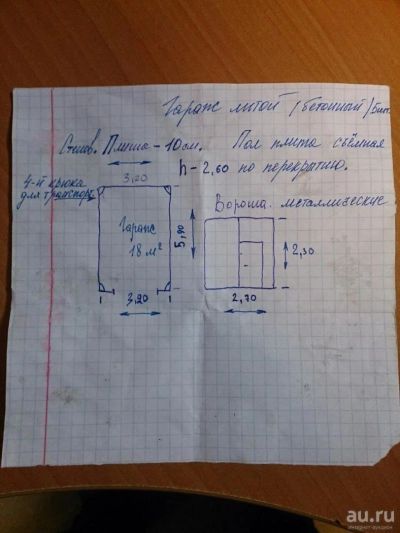 Гараж литой /бетонный/
Плита - 10 см. Пол плита съёмная
h - 2,60 по перекрытию.
4-й крюка
для транспорт.
3,20
Ворота металлические
Гараж
18 м²
5,90
2,30
3,20
2,70
au.ru
интернет-аукцион